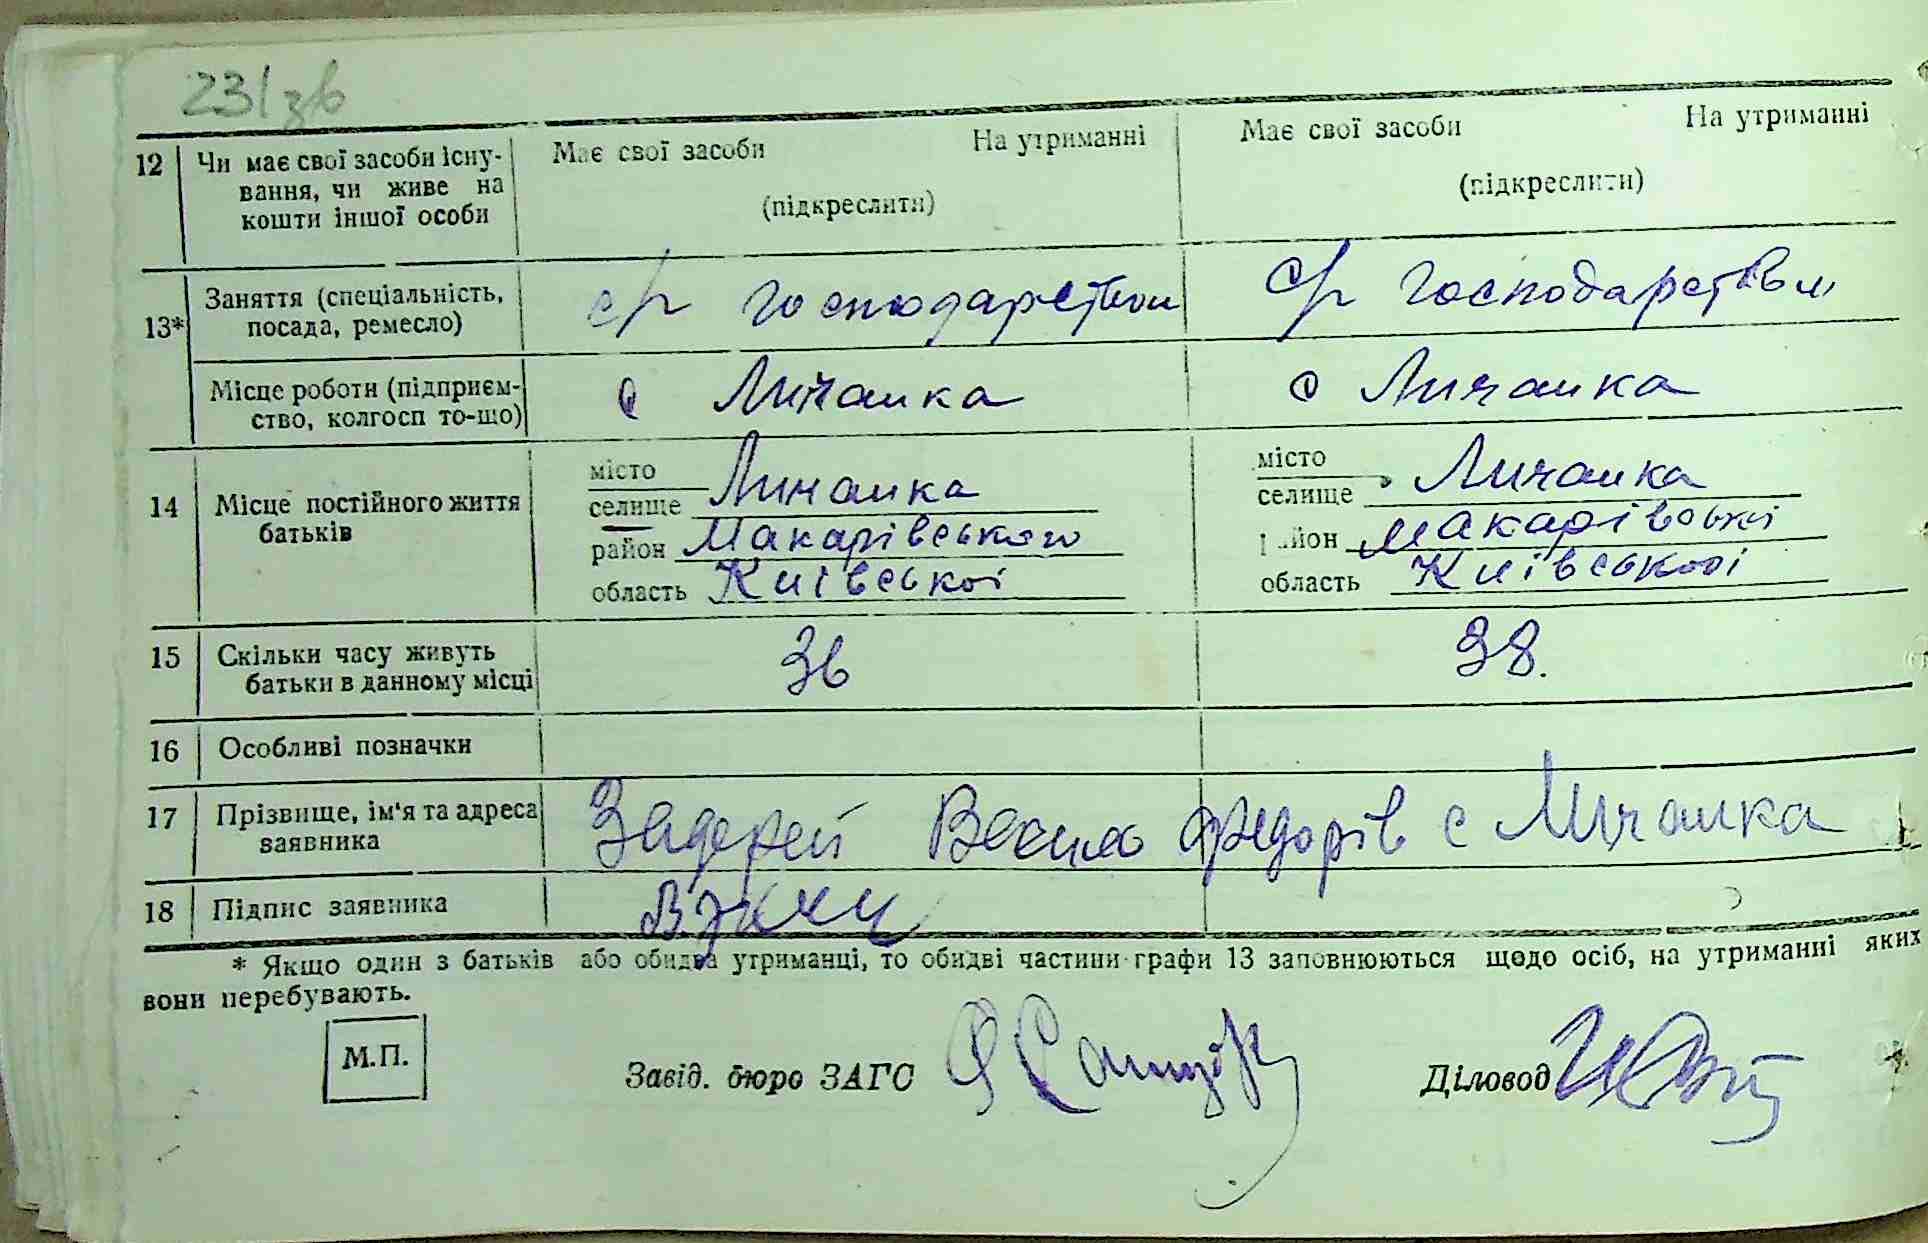 231 зв
12 Чи має свої засоби існу- Має свої засоби На утриманні Має свої засоби На утриманні
вання, чи живе на
кошти іншої особи (підкреслити) (підкреслити)
13* Заняття (спеціальність, с/г господарством с/г господарством
посада, ремесло)
Місце роботи (підприєм- с Личанка с Личанка
ство, колгосп то-що)
14 Місце постійного життя місто Личанка місто Личанка
батьків селище селище
район Макарівського район Макарівської
область Київської область Київської
15 Скільки часу живуть 36 38.
батьки в данному місці
16 Особливі позначки
17 Прізвище, ім'я та адреса Задерей Василь Федорів с Личанка
заявника
18 Підпис заявника
* Якщо один з батьків або обидва утриманці, то обидві частини графи 13 заповнюються щодо осіб, на утриманні яких
вони перебувають.
М.П. Завід. бюро ЗАГС Діловод